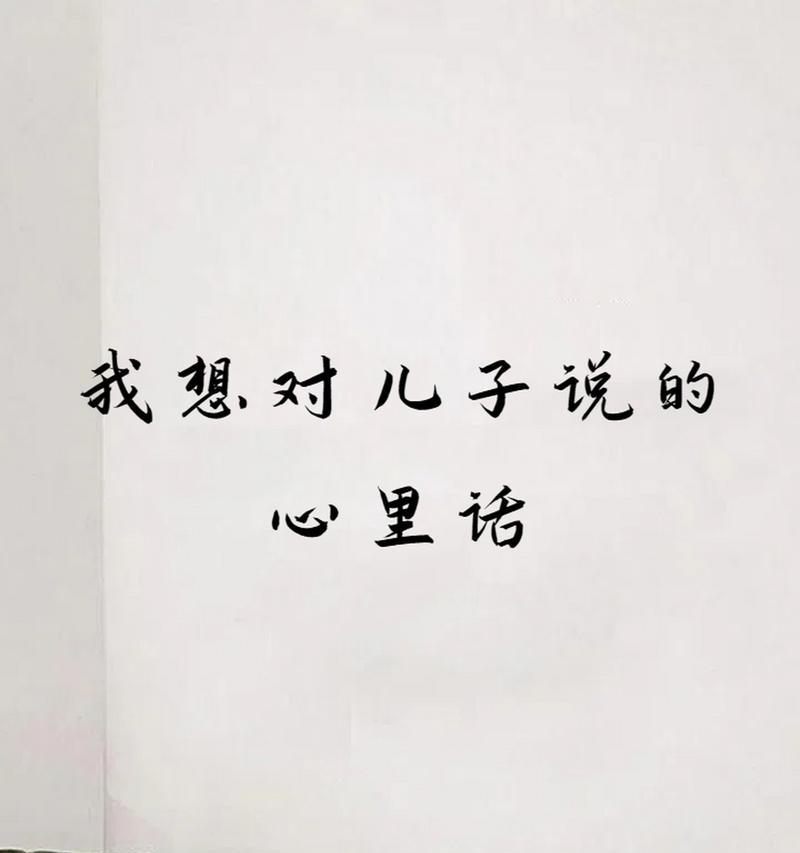 我想对儿子说的
心里话